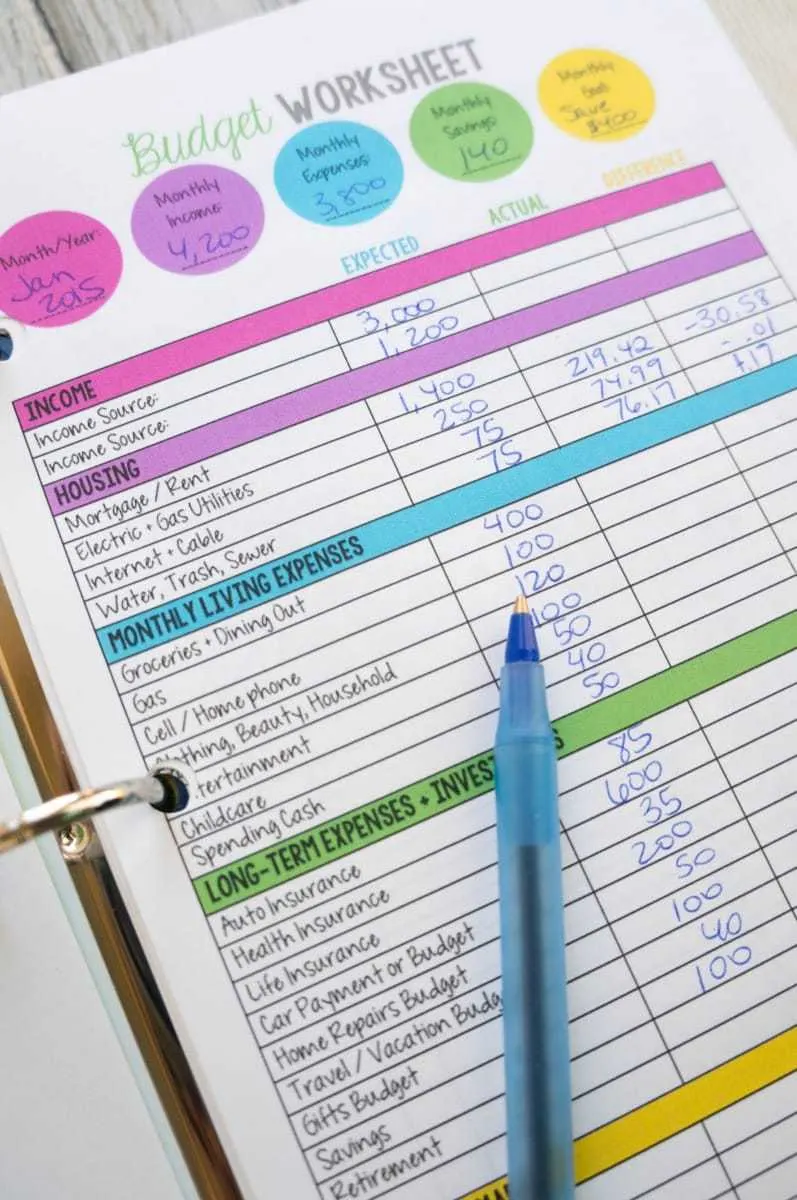 Budget WORKSHEET
Month/Year:
Jan
2015
Monthly
Income:
4,200
Monthly
Expenses:
3,800
Monthly
Savings:
140
Monthly
Goal
Save
$400
EXPECTED ACTUAL DIFFERENCE
INCOME
Income Source: 3,000
Income Source: 1,200
HOUSING
Mortgage / Rent 1,400
Electric + Gas Utilities 250 219.42 -30.58
Internet + Cable 75 74.99 -.01
Water, Trash, Sewer 75 76.17 1.17
MONTHLY LIVING EXPENSES
Groceries + Dining Out 400
Gas 100
Cell / Home phone 120
thing, Beauty, Household 100
tertainment 50
Childcare 40
Spending Cash 50
LONG-TERM EXPENSES + INVES S
Auto Insurance 85
Health Insurance 600
Life Insurance 35
Car Payment or Budget 200
Home Repairs Budget 50
Travel / Vacation Budg 100
Gifts Budget 40
Savings 100
Retirement